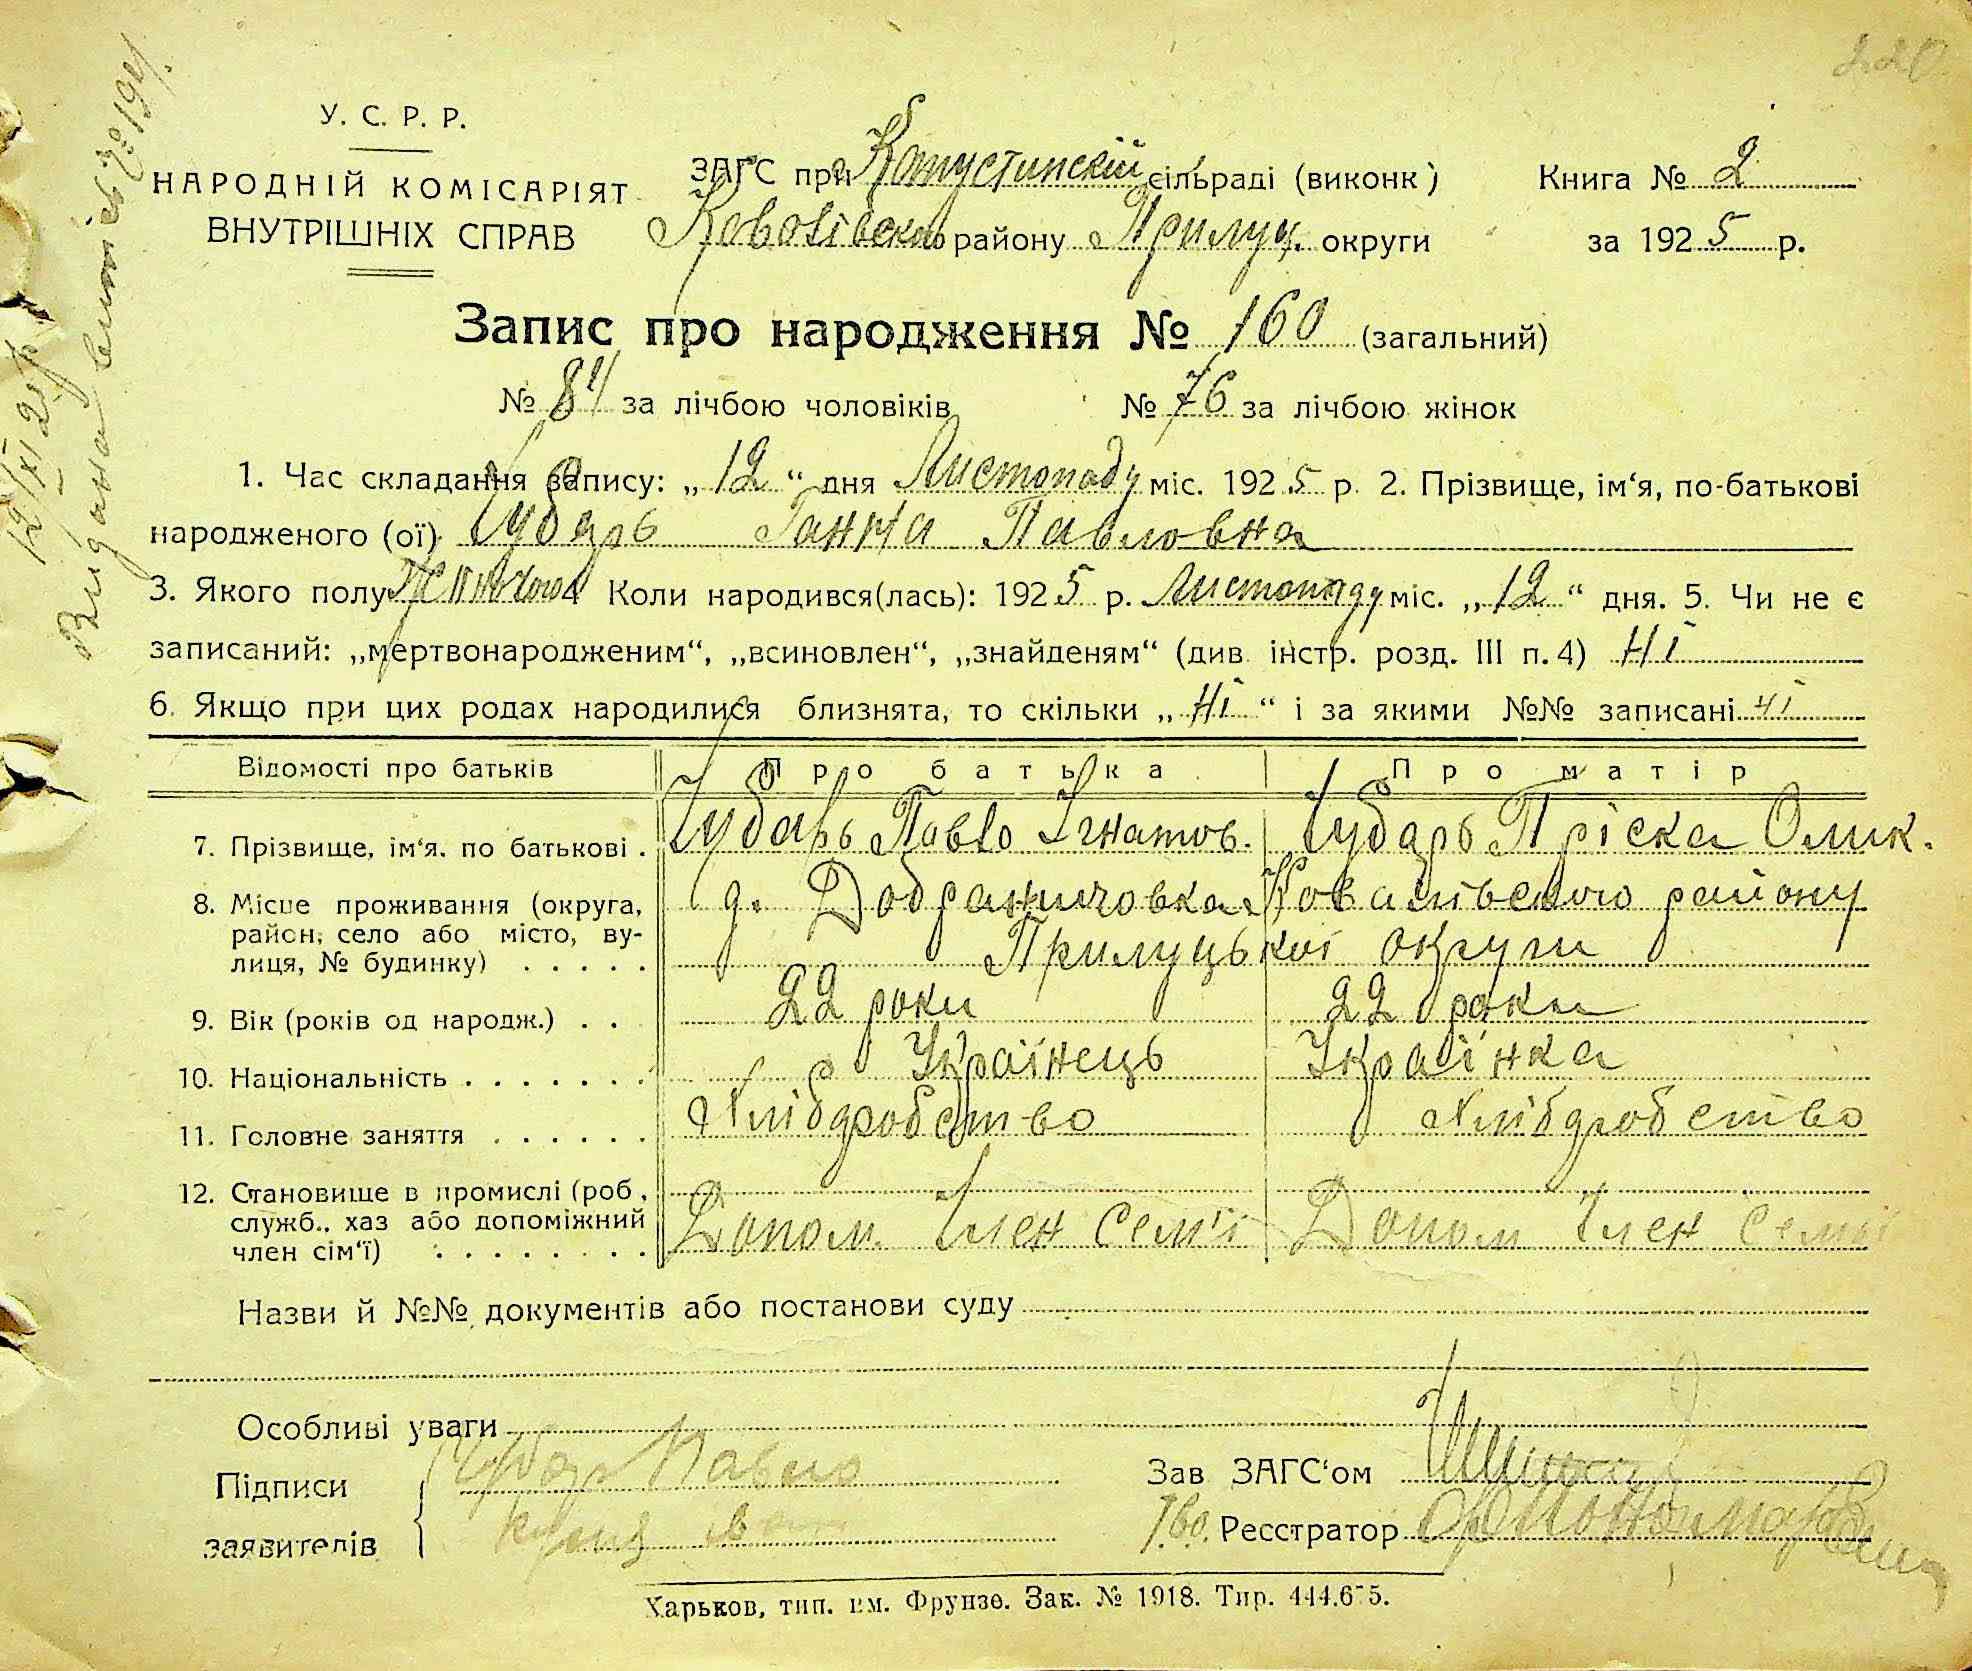 220
У. С. Р. Р.
НАРОДНІЙ КОМІСАРІЯТ
ВНУТРІШНІХ СПРАВ
ЗАГС при Капустинскій сільраді (виконк)
Ковалівского району Прилуц. округи
Книга № 2
за 1925 р.
Запис про народження № 160 (загальний)
№ 84 за лічбою чоловіків № 76 за лічбою жінок
1. Час складання запису: „12“ дня Листопаду міс. 1925 р. 2. Прізвище, ім‘я, по-батькові
народженого (ої) Чубарь Ганна Павловна
3. Якого полу Жіночого 4 Коли народився(лась): 1925 р. Листопаду міс. „12“ дня. 5. Чи не є
записаний: „мертвонародженим“, „всиновлен“, „знайденям“ (див. інстр. розд. III п. 4) Ні
6. Якщо при цих родах народилися близнята, то скільки „Ні“ і за якими №№ записані ні
Відомості про батьків Про батька Про матір
7. Прізвище, ім‘я. по батькові . Чубарь Павло Ігнатов. Чубарь Пріска Олик.
8. Місце проживання (округа, район, село або місто, вулиця, № будинку) . . . . . д. Добраничовка Ковалівского району
Прилуцької округи
9. Вік (років од народж.) . . 22 роки 22 роки
10. Національність . . . . . . . Українець Українка
11. Головне заняття . . . . . . Хлібдробство Хлібдробство
12. Становище в промислі (роб, служб., хаз або допоміжний член сім‘ї) . . . . . . . . Допом. Член Сем'ї Допом Член Семьї
Назви й №№ документів або постанови суду
Особливі уваги
Підписи
заявителів
Чубар Павло
Зав ЗАГС‘ом
Т.в.о. Реєстратор
Харьков, тип. им. Фрунзе. Зак. № 1918. Тир. 444.675.
12/XI 25 р.
Видана витіс